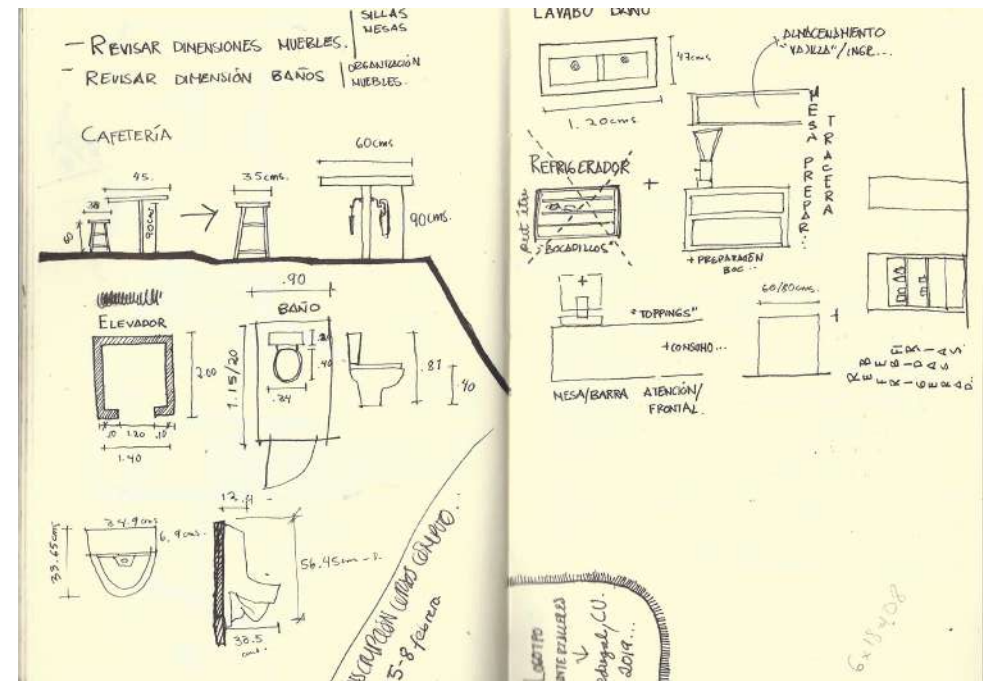 - REVISAR DIMENSIONES MUEBLES.
SILLAS
MESAS
- REVISAR DIMENSIÓN BAÑOS
ORGANIZACIÓN
MUEBLES.
CAFETERÍA
45.
38
60
90cms.
35cms.
60cms
90cms.
ELEVADOR
200
.10 1.20 .10
1.40
.90
BAÑO
1.15/20
.40
.34
.81
40
34.9cms
6.9cms.
33.65cms
13.
56.45cm
38.5
cms.
CURSO
5-8 febrero
LAVABO
47cms
1.20cms
ALMACENAMIENTO
"VAJILLA"/INGR...
MESA PREPAR...
TRACERA
REFRIGERADOR
+
"BOCADILLOS"
+ PREPARACIÓN
BOC...
+
"TOPPINGS"
+CONSUMO...
MESA/BARRA ATENCIÓN/
FRONTAL.
60/80cms.
+
BEBIDAS
REFRIGERAD.
LOGOTIPO
CU.
2019...
6x18x08